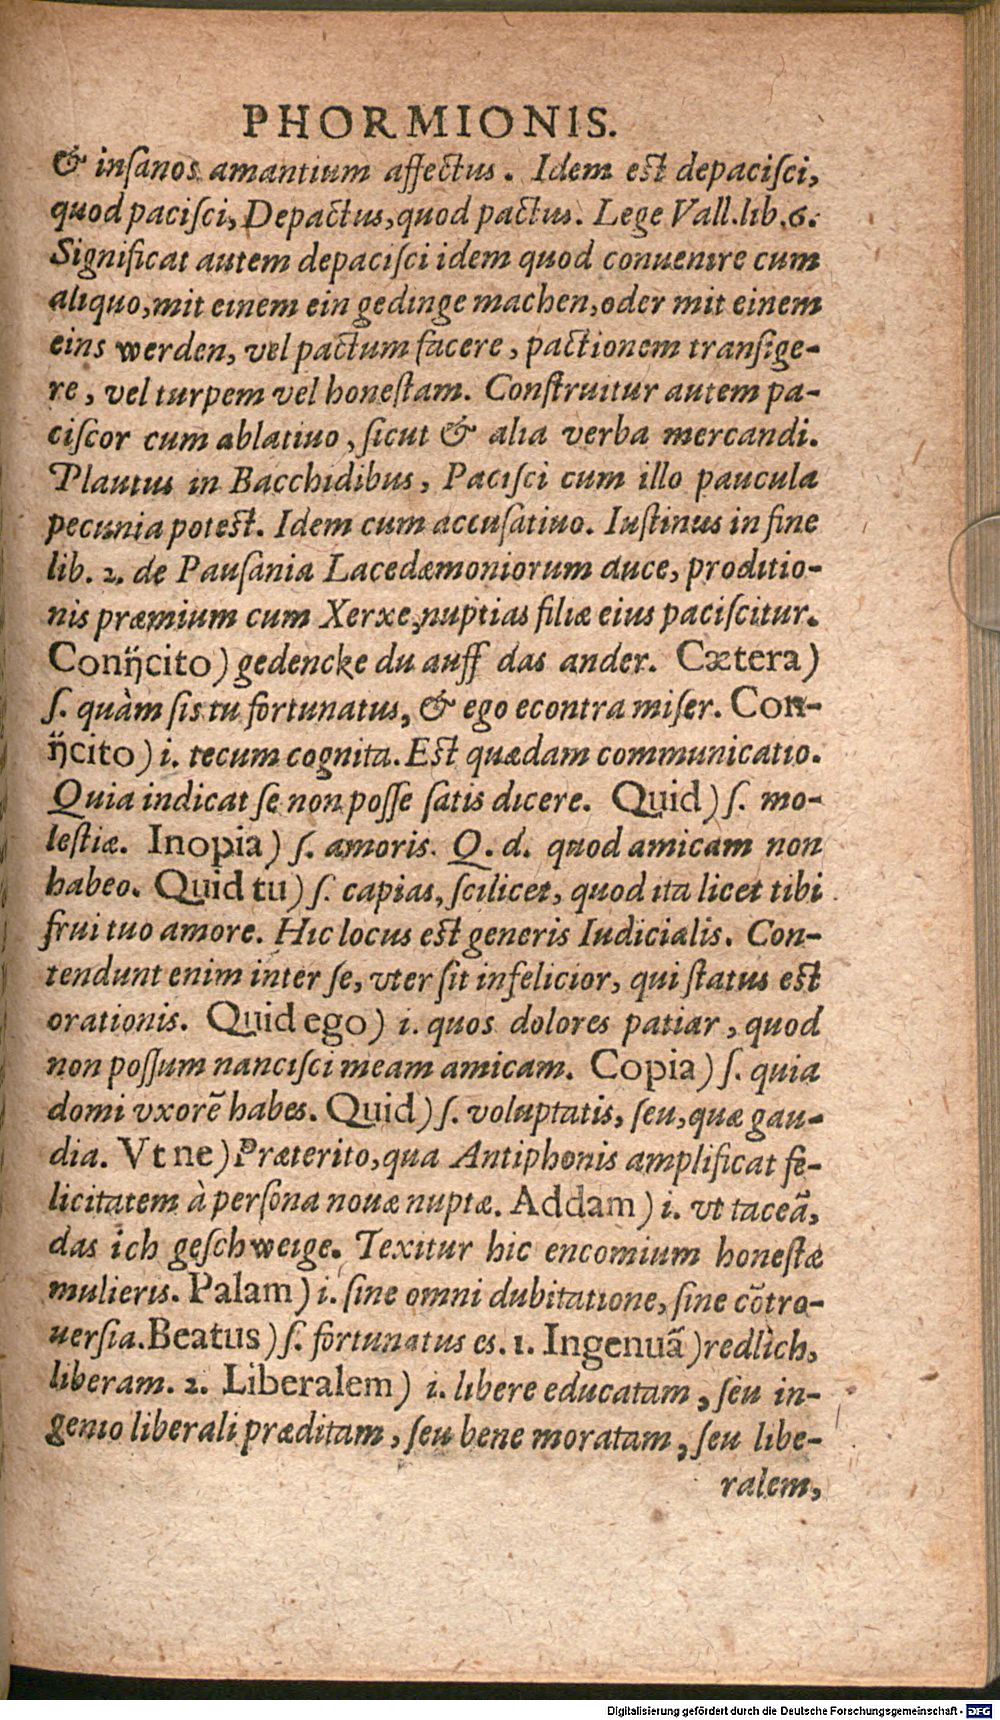 PHORMIONIS.
& inſanos amantium affectus. Idem est depaciſci,
quod paciſci, Depactus, quod pactus. Lege Vall. lib. 6.
Significat autem depaciſci idem quod conuenire cum
aliquo, mit einem ein gedinge machen, oder mit einem
eins werden, vel pactum facere, pactionem tranſige-
re, vel turpem vel honeſtam. Conſtruitur autem pa-
ciſcor cum ablatiuo, ſicut & alia verba mercandi.
Plautus in Bacchidibus, Paciſci cum illo paucula
pecunia potest. Idem cum accuſatiuo. Iuſtinus in fine
lib. 2. de Pauſania Lacedæmoniorum duce, proditio-
nis præmium cum Xerxe, nuptias filiæ eius paciſcitur.
Conijcito) gedencke du auff das ander. Cætera)
ſ. quàm ſis tu fortunatus, & ego econtra miſer. Con-
ijcito) i. tecum cognita. Est quædam communicatio.
Quia indicat ſe non poſſe ſatis dicere. Quid) ſ. mo-
leſtiæ. Inopia) ſ. amoris. Q. d. quod amicam non
habeo. Quid tu) ſ. capias, ſcilicet, quod ita licet tibi
frui tuo amore. Hic locus est generis Iudicialis. Con-
tendunt enim inter ſe, vter ſit infelicior, qui ſtatus est
orationis. Quid ego) i. quos dolores patiar, quod
non poſſum nanciſci meam amicam. Copia) ſ. quia
domi vxorē habes. Quid) ſ. voluptatis, ſeu, quæ gau-
dia. Vt ne) Præterito, qua Antiphonis amplificat fe-
licitatem à perſona nouæ nuptæ. Addam) i. vt taceā,
das ich geſchweige. Texitur hic encomium honeſtæ
mulieris. Palam) i. ſine omni dubitatione, ſine cōtro-
uerſia. Beatus) ſ. fortunatus es. 1. Ingenuā) redlich,
liberam. 2. Liberalem) i. libere educatam, ſeu in-
genio liberali præditam, ſeu bene moratam, ſeu libe-
ralem,
Digitalisierung gefördert durch die Deutsche Forschungsgemeinschaft - DFG